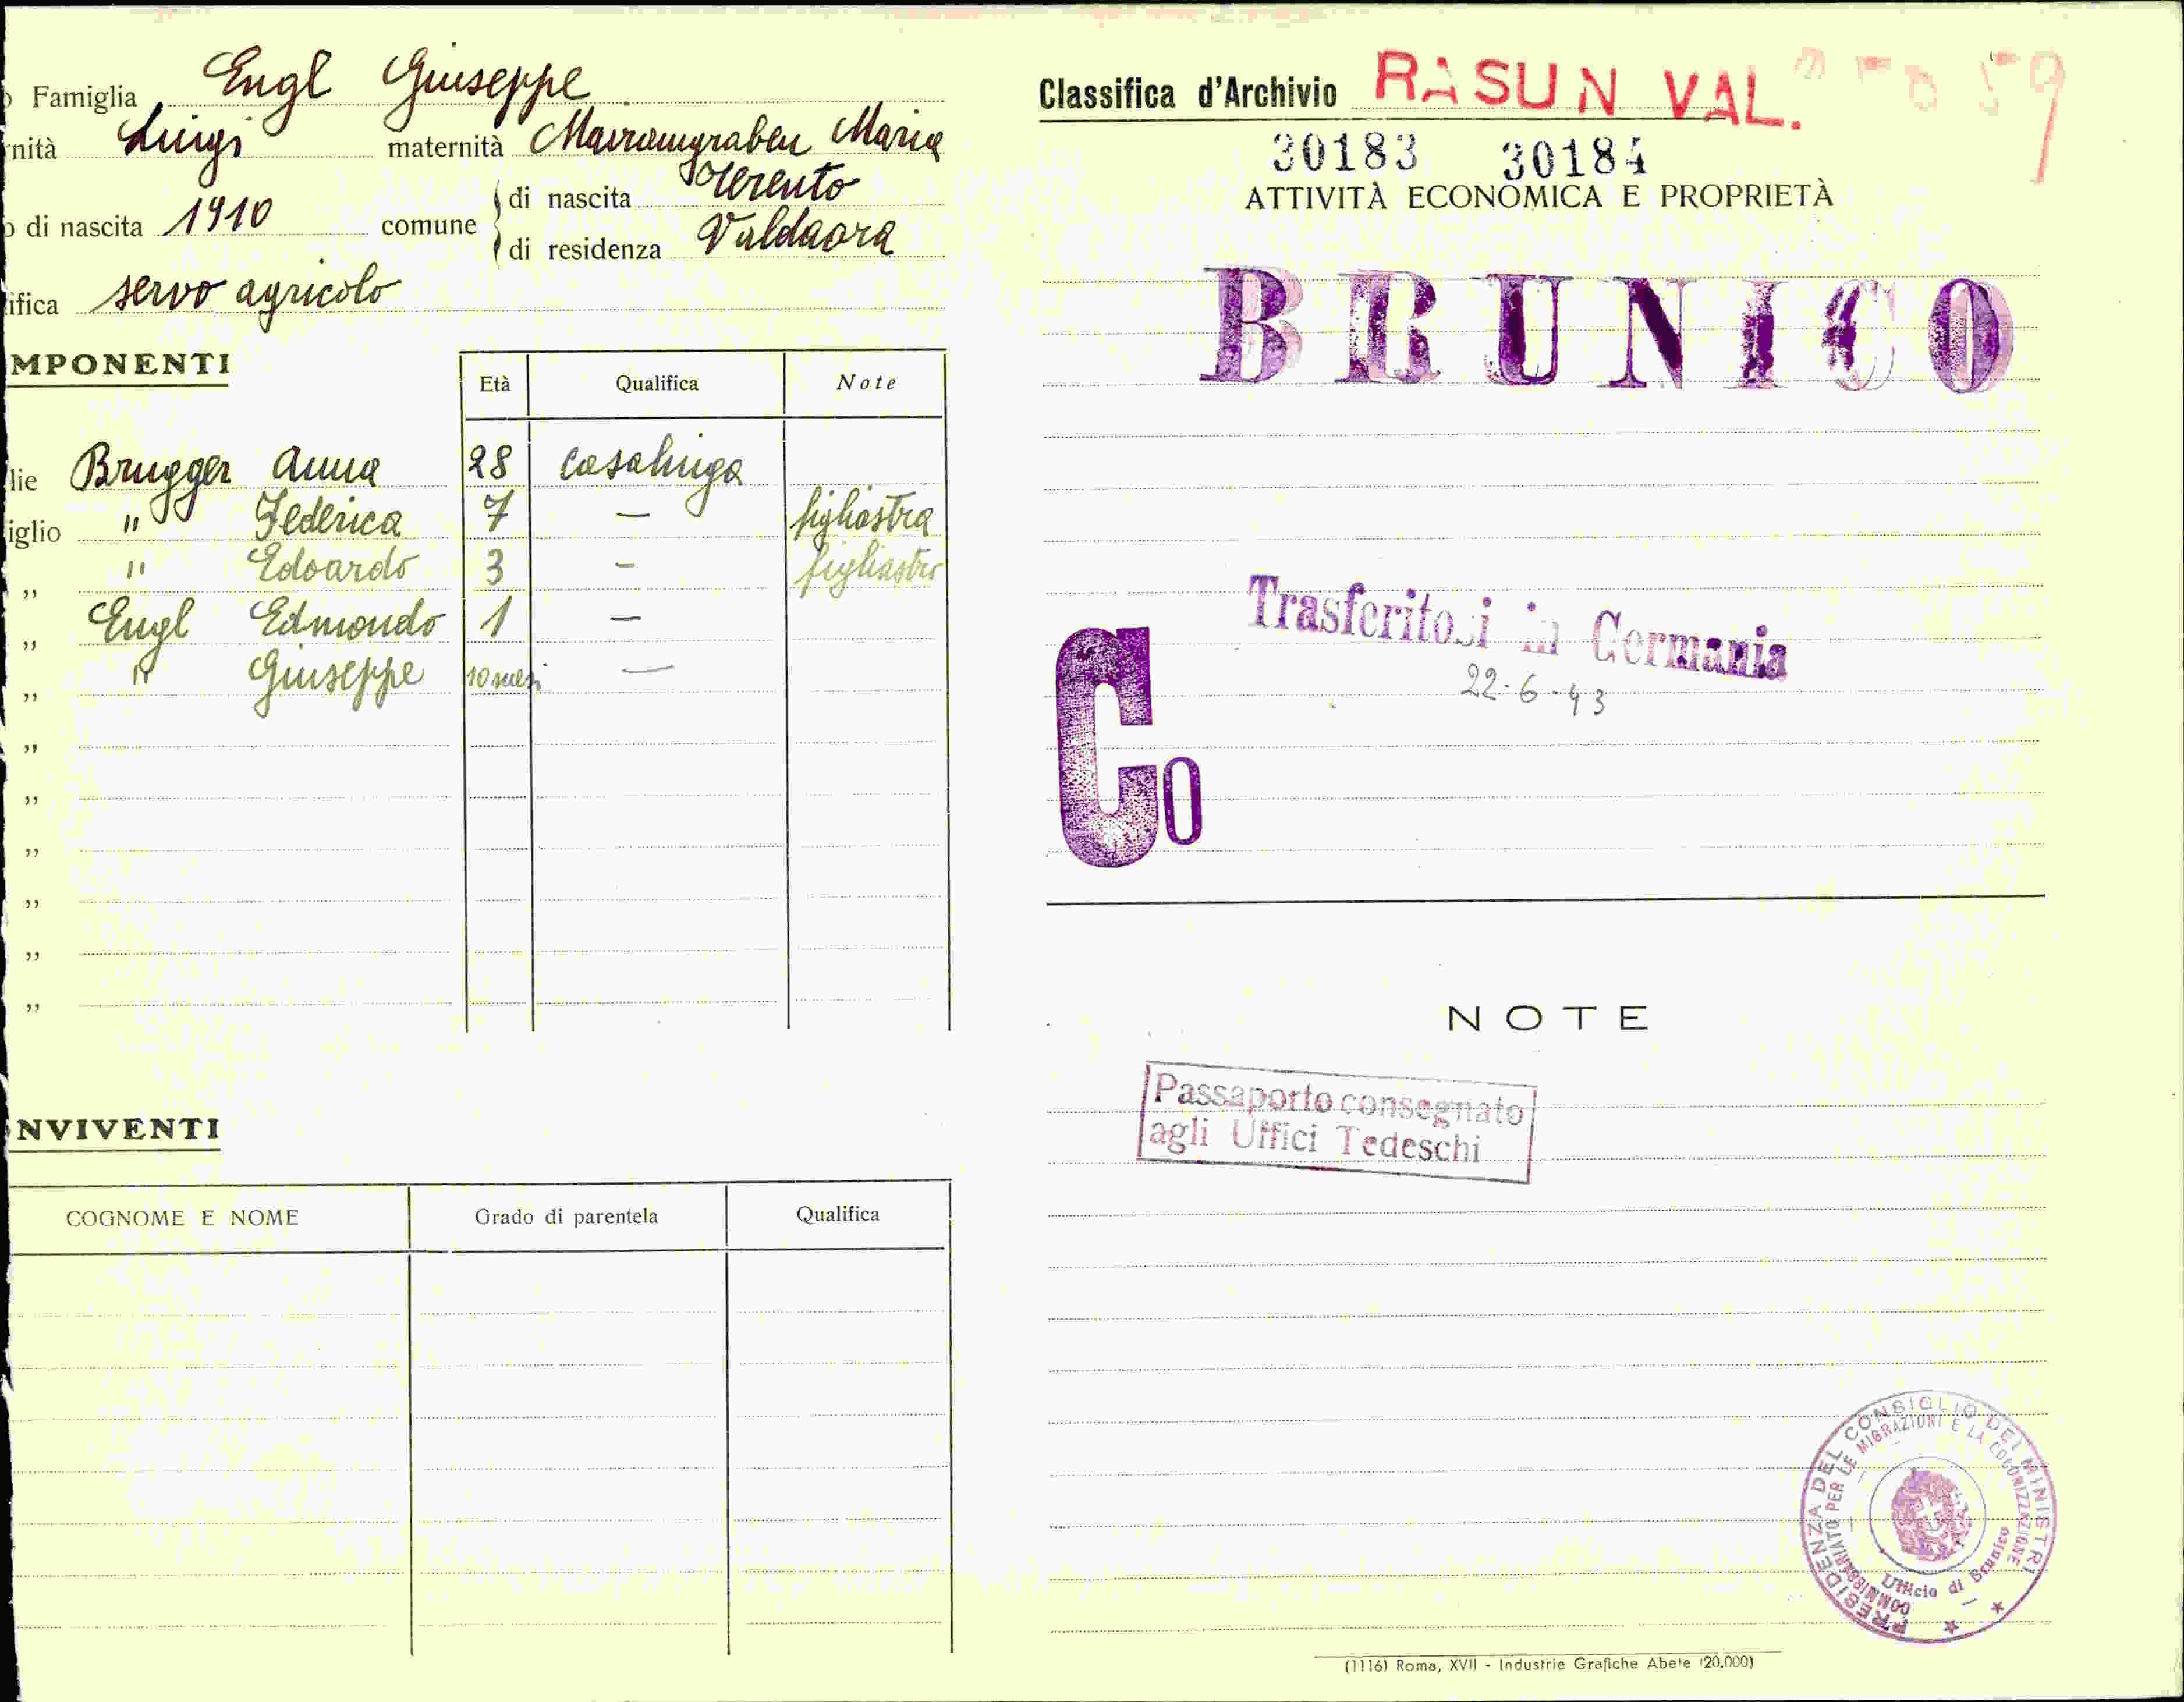 Famiglia Engl Giuseppe
nità Luigi maternità Mairamgraben Maria
o di nascita 1910 comune di nascita Terento
di residenza Valdaora
ifica servo agricolo
MPONENTI
Età Qualifica Note
lie Brugger Anna 28 casalinga
iglio " Federica 7 — figliastra
" " Edoardo 3 — figliastro
" Engl Edmondo 1 —
" " Giuseppe 10 mesi —
"
"
"
"
"
"
NVIVENTI
COGNOME E NOME Grado di parentela Qualifica
Classifica d'Archivio RASUN VAL.
30183 30184
ATTIVITÀ ECONOMICA E PROPRIETÀ
BRUNICO
Trasferitosi in Germania
22-6-43
Co
NOTE
Passaporto consegnato
agli Uffici Tedeschi
PRESIDENZA DEL CONSIGLIO DEI MINISTRI
COMMISSARIATO PER LE MIGRAZIONI E LA COLONIZZAZIONE
Ufficio di Brunico
(1116) Roma, XVII - Industrie Grafiche Abete (20.000)